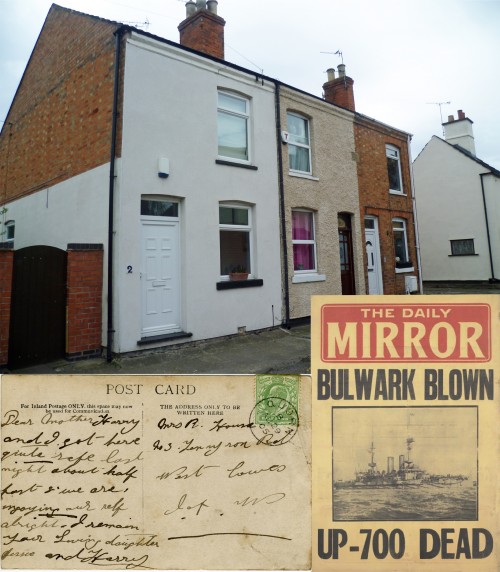 2
POST CARD
For Inland Postage ONLY, this space may now
be used for Communication.
THE ADDRESS ONLY TO BE
WRITTEN HERE.
Dear Mother Harry
and I got here
quite safe last
night about half
past 8 we are
enjoying our self
alright. I remain
your loving daughter
and Harry
Mrs R.
West Cowes
THE DAILY
MIRROR
BULWARK BLOWN
UP-700 DEAD